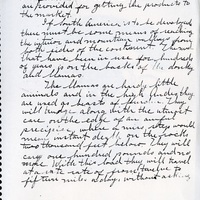 are provided for getting the products to
the market.
If South America is to be developed
there must be some means of reaching
the interior and mountain regions from
both sides of the continent. The
that have been in use for hundreds
of years on the backs of the donkey
and llamas.
The llamas are hardy little
animals and in the high altitudes they
are used as beasts of burden. They
will trudge along with the utmost
care on the edge of an awful
precipice, where a mis step will
mean instant death on the rocks
two thousand feet below. They will
carry one hundred pounds and no
more. With this load they will travel
at a rate of from twelve to
fifteen miles a day, without asking